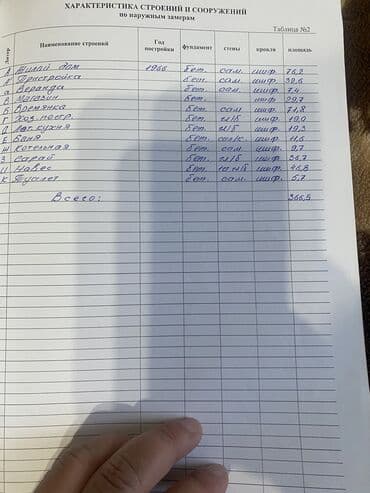 ХАРАКТЕРИСТИКА СТРОЕНИЙ И СООРУЖЕНИЙ
по наружным замерам
Таблица №2
Литер Наименование строений Год постройки фундамент стены кровля площадь
А Жилой дом 1966 бет. сам. шиф. 76,2
Пристройка бет. сам. шиф. 39,6
а Веранда бет. сам. шиф. 7,4
Магазин бет. шиф. 29,7
Б Времянка бет. сам шиф. 71,8
Г Хоз. постр. бет. шиф. 19,0
Лет. кухня бет. шиф. 19,3
Баня бет. шиф.
Котельная бет. сам. шиф. 9,7
Сарай бет. шиф.
Навес бет. шиф.
К Туалет бет. сам. шиф. 5,7
Всего: 366,5